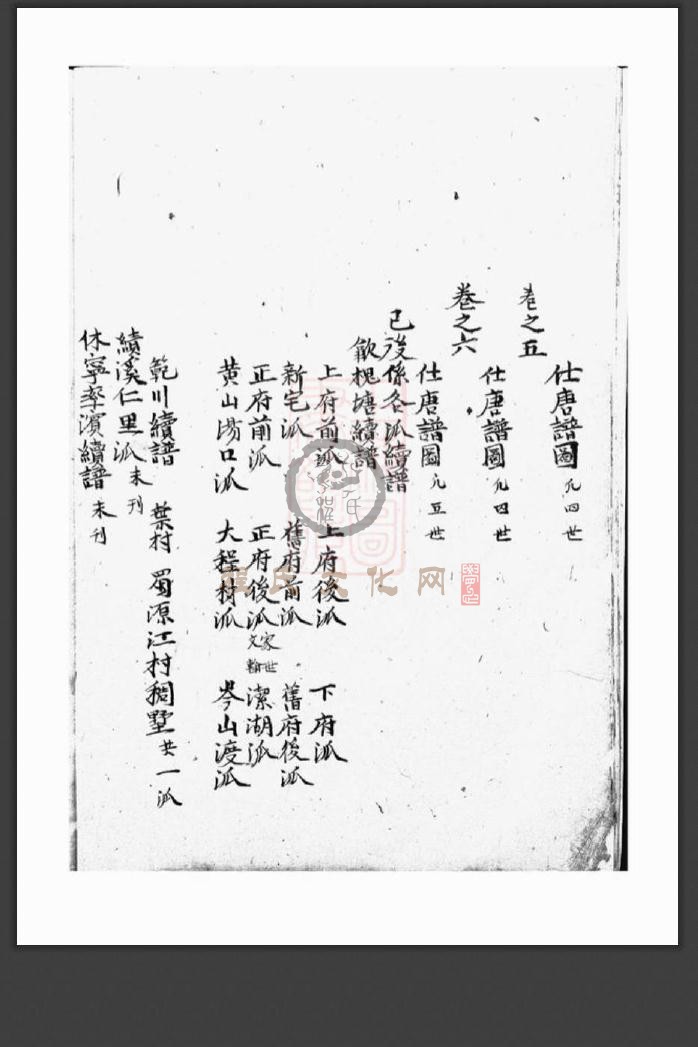 仕唐譜圖 凡四世
卷之五
仕唐譜圖 凡四世
卷之六
仕唐譜圖 凡五世
已後係各派續譜
歙槐塘續譜
上府前派 上府後派 下府派
新宅派 舊府前派 舊府後派
正府前派 正府後派 家世文翰 潔湖派
黄山湯口派 大程村派 岑山渡派
範川續譜 葉村 蜀源江村稠墅 共一派
績溪仁里派 未刊
休寧率濱續譜 未刊
程氏文化网